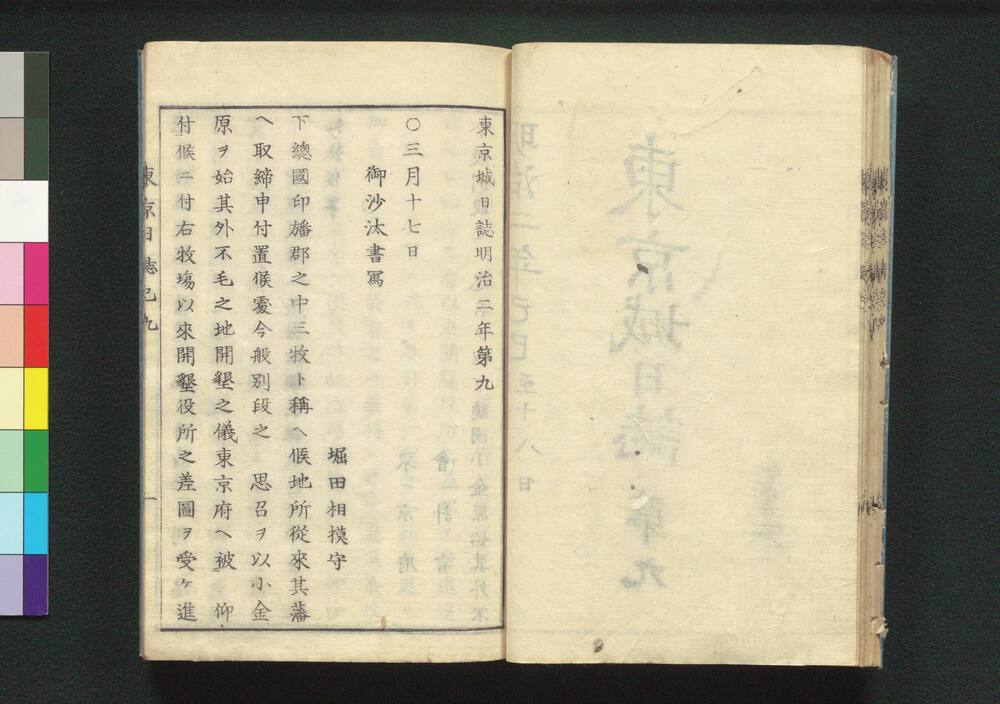 東京城日誌明治二年第九
〇三月十七日
御沙汰書寫
堀田相摸守
下總國印旛郡之中三牧ト稱ヘ候地所從來其藩
ヘ取締申付置候處今般別段之　思召ヲ以小金
原ヲ始其外不毛之地開墾之儀東京府ヘ被　仰
付候ニ付右牧塲以來開墾役所之差圖ヲ受ケ進
東京日誌己九
一